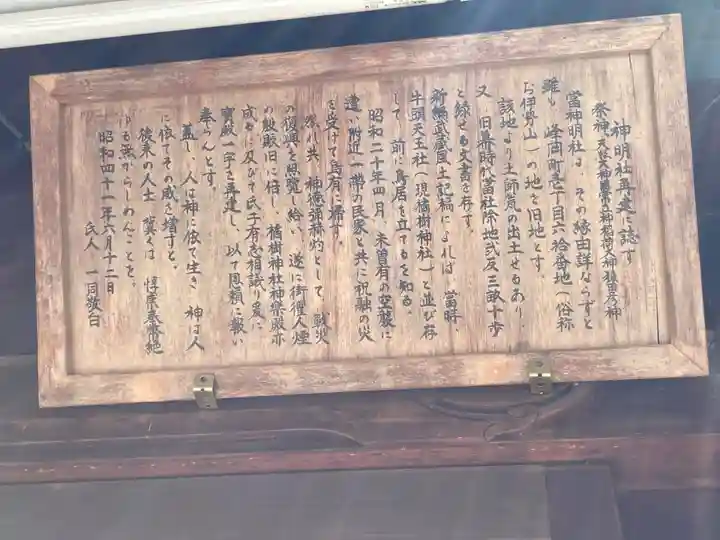 神明社再建に誌す
祭神 天照大神 豊受大神 稲荷大神 猿田彦神
當神明社は、その縁由詳ならずと
雖も 峰岡町壱丁目六拾番地（俗称
お伊勢山）の地を旧地とす
該地より土師窯の出土せるあり、
又 旧幕時代當社除地弐反三畝十歩
と録せる文書を存す。
新編武蔵風土記稿によれば 當時
牛頭天王社（現橘樹神社）と並び存
して 前に鳥居を立てるを知る。
昭和二十年四月、未曽有の空襲に
遭い附近一帯の民家と共に祝融の災
を受けて烏有に帰す。
然れ共 神徳弥彌灼として 戦火
の復興を照覧し給い、遂に街衢人煙
の殷賑旧に倍し、橘樹神社神楽殿亦
成るに及びて氏子有志相議り爰に
寶殿一宇を再建し 以て恩頼に報い
奉らんとす。
蓋し、人は神に依て生き 神は人
に依てその威を増すと。
後来の人士 冀くは 惇庸奉齋絶
ゆる無からしめんことを。
昭和四十一年六月十二日
氏人 一同敬白